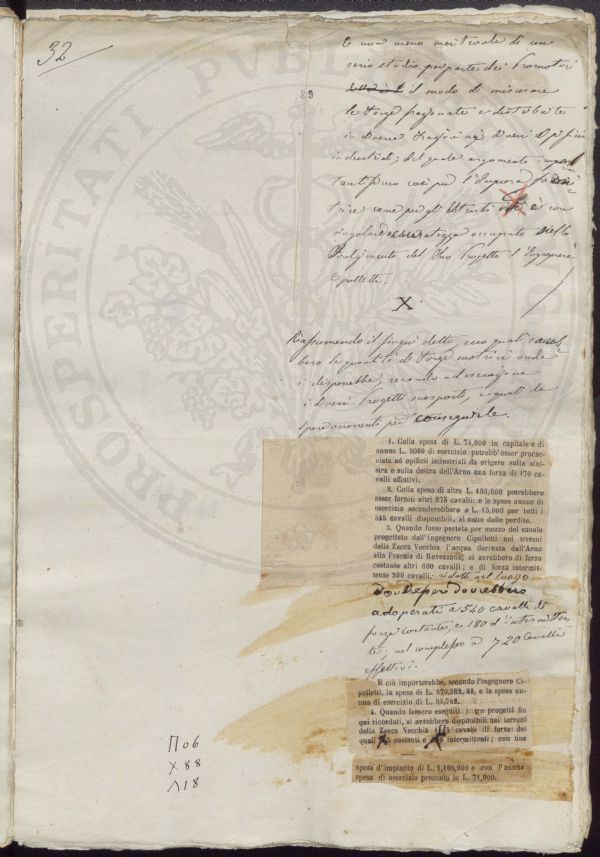 32
È non meno meritevole di un
serio studio per parte dei Promotori
il modo di misurare
le forze frazionate e distribuite
in diverse ragioni agli diversi opificii
industriali; del quale argomento impor
tantissimo così per l'Impresa
trice come per gli Utenti è con
singolare esattezza occupato nello
Svolgimento del Suo Progetto l'Ingegnere
Cipolletti.
X
Riassumendo il fin qui detto, ecco quali sareb
bero le quantità di forze motrici onde
si disporrebbe, recando ad esecuzione
i diversi Progetti suesposti, e quali le
spese occorrenti per conseguirle.
1. Colla spesa di L. 74,000 in capitale e di
annue L. 2000 di esercizio potrebb'esser procac-
ciata ad opificii industriali da erigere sulla sini-
stra e sulla destra dell'Arno una forza di 170 ca-
valli effettivi.
2. Colla spesa di altre L. 450,000 potrebbero
esser forniti altri 275 cavalli; e le spese annue di
esercizio ascenderebbero a L. 15,000 per tutti i
345 cavalli disponibili, al netto delle perdite.
3. Quando fosse portata per mezzo del canale
progettato dall'ingegnere Cipolletti nei terreni
della Zecca Vecchia l'acqua derivata dall'Arno
alla Pescaia di Rovezzano, si avrebbero di forza
costante altri 600 cavalli; e di forza intermit-
tente 200 cavalli. ridotti nel luogo
dov'eglino dovrebbero
adoperarsi a 540 cavalli di
forza costante, e 180 d'intermitten
te, nel complesso a 720 Cavalli
effettivi.
E ciò importerebbe, secondo l'ingegnere Ci-
polletti, la spesa di L. 879,382,88, e la spesa an-
nua di esercizio di L. 55,762.
4. Quando fossero eseguiti i tre progetti fin
qui ricordati, si avrebbero disponibili nei terreni
della Zecca Vecchia cavalli di forza: dei
quali costanti e intermittenti; con una
spesa d'impianto di L. 1,400,000 e con l'annua
spesa di esercizio presunta in L. 71,000.
Π06
X88
Λ18